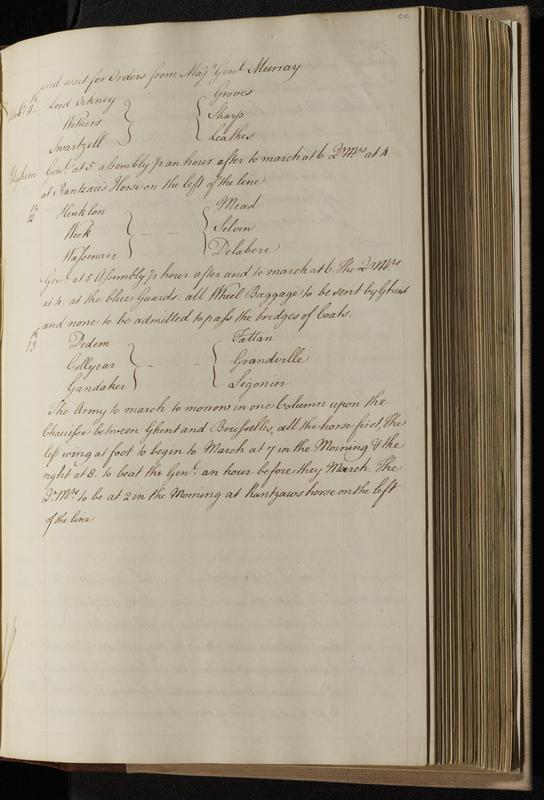 and wait for Orders from Majr Genl Murray
11th Lord Orkney } { Groves
Withers } { Sharp
Swartzell } { Leathes
Genl at 5 assembly ½ an hour after to march at 6 Qr Mrs at 4
at Rantzaus Horse on the left of the line
12th Heuklon } — — { Mead
Week } { Selvin
Wassenaer } { Delabere
Genl at 5 Assembly ½ hour after and to march at 6. The Qr Mrs
at 4. at the blue Guards. all Wheel Baggage to be sent by Ghent
and none to be admitted to pass the bridges of boats.
13th Dedem } — — { Tattan
Collyear } { Grandville
Gandaker } { Ligonier
The Army to march to morrow in one Column upon the
Chauisse between Ghent and Brusselles, all the horse first, The
left wing at foot to begin to March at 7 in the Morning & the
right at 8. to beat the Genl. an hour before they March. The
Qr Mrs to be at 2 in the Morning at Rantzaws horse on the left
of the line